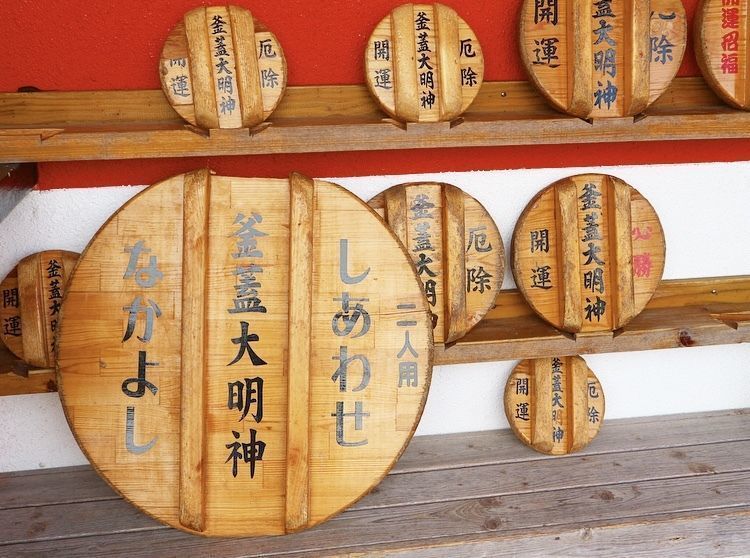 厄除
釜蓋大明神
開運
厄除
釜蓋大明神
開運
厄除
蓋大明神
開運
開運招福
二人用
しあわせ
釜蓋大明神
なかよし
厄除
釜蓋大明
必勝
釜蓋大明神
開運
釜蓋
開運
厄除
釜蓋大明神
開運